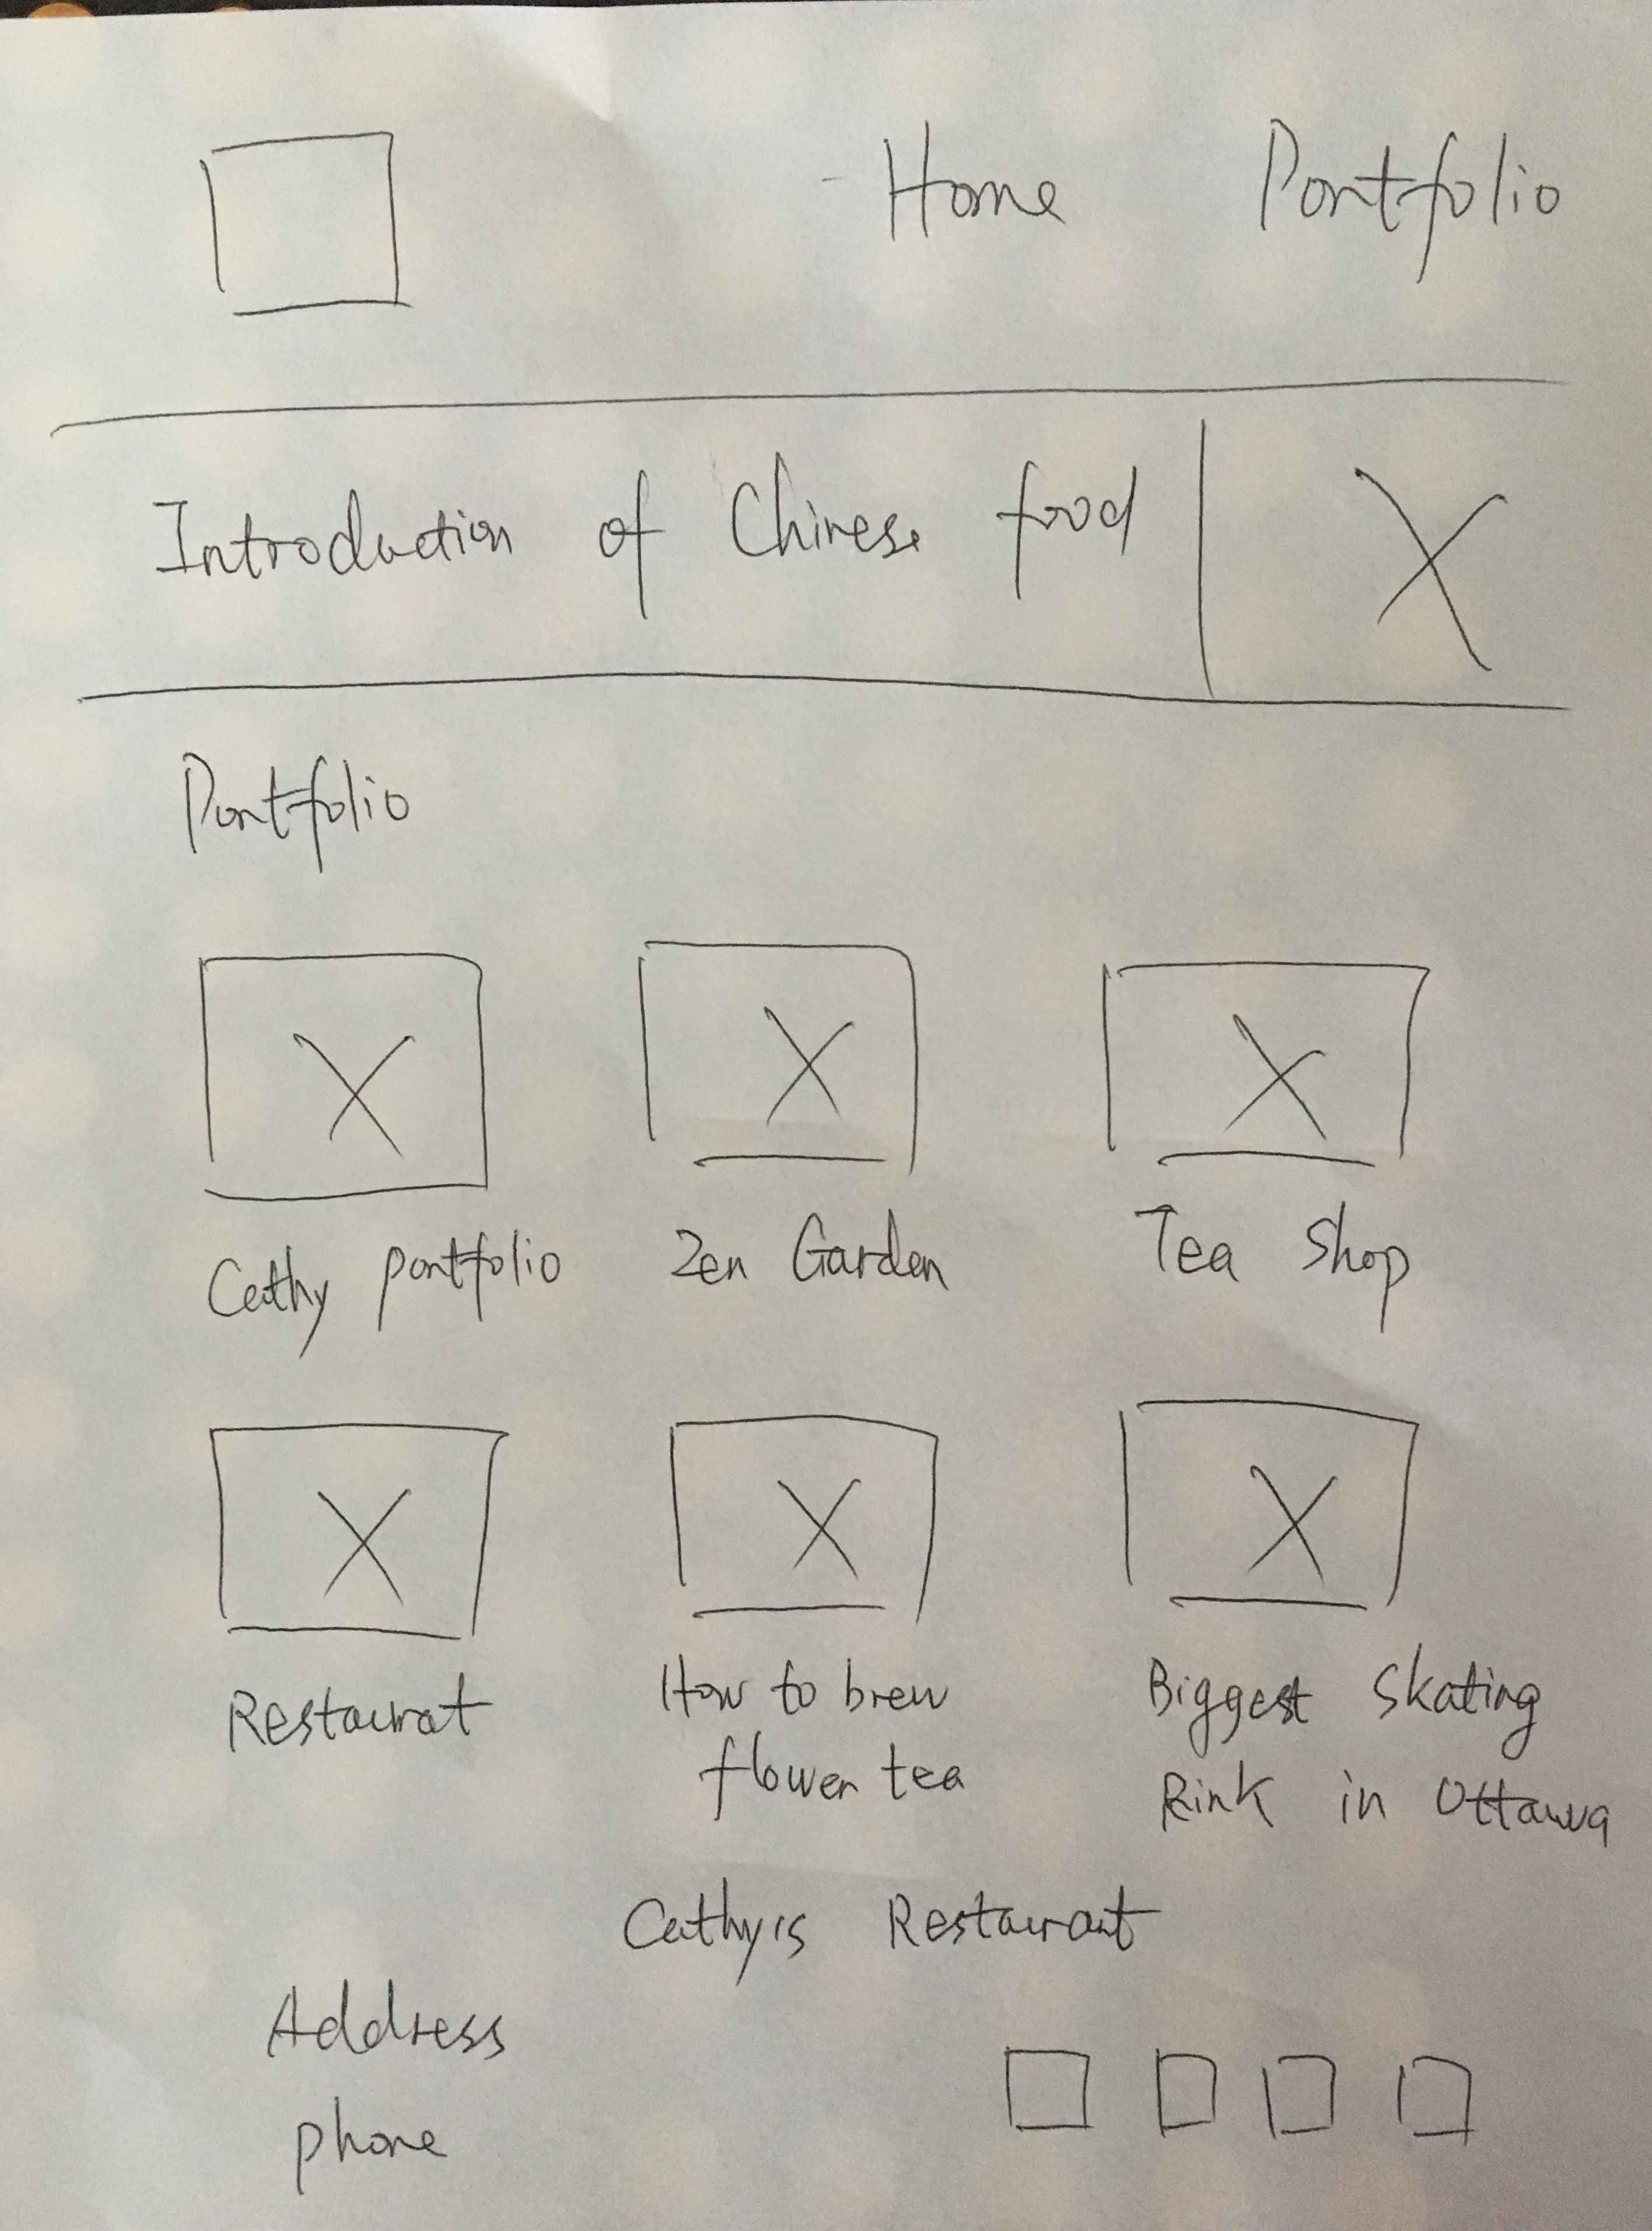 Home Portfolio
Introduction of Chinese food
Portfolio
Cathy portfolio Zen Garden Tea Shop
Restaurat How to brew Biggest Skating
flower tea Rink in Ottawa
Cathy's Restaurant
Address
phone